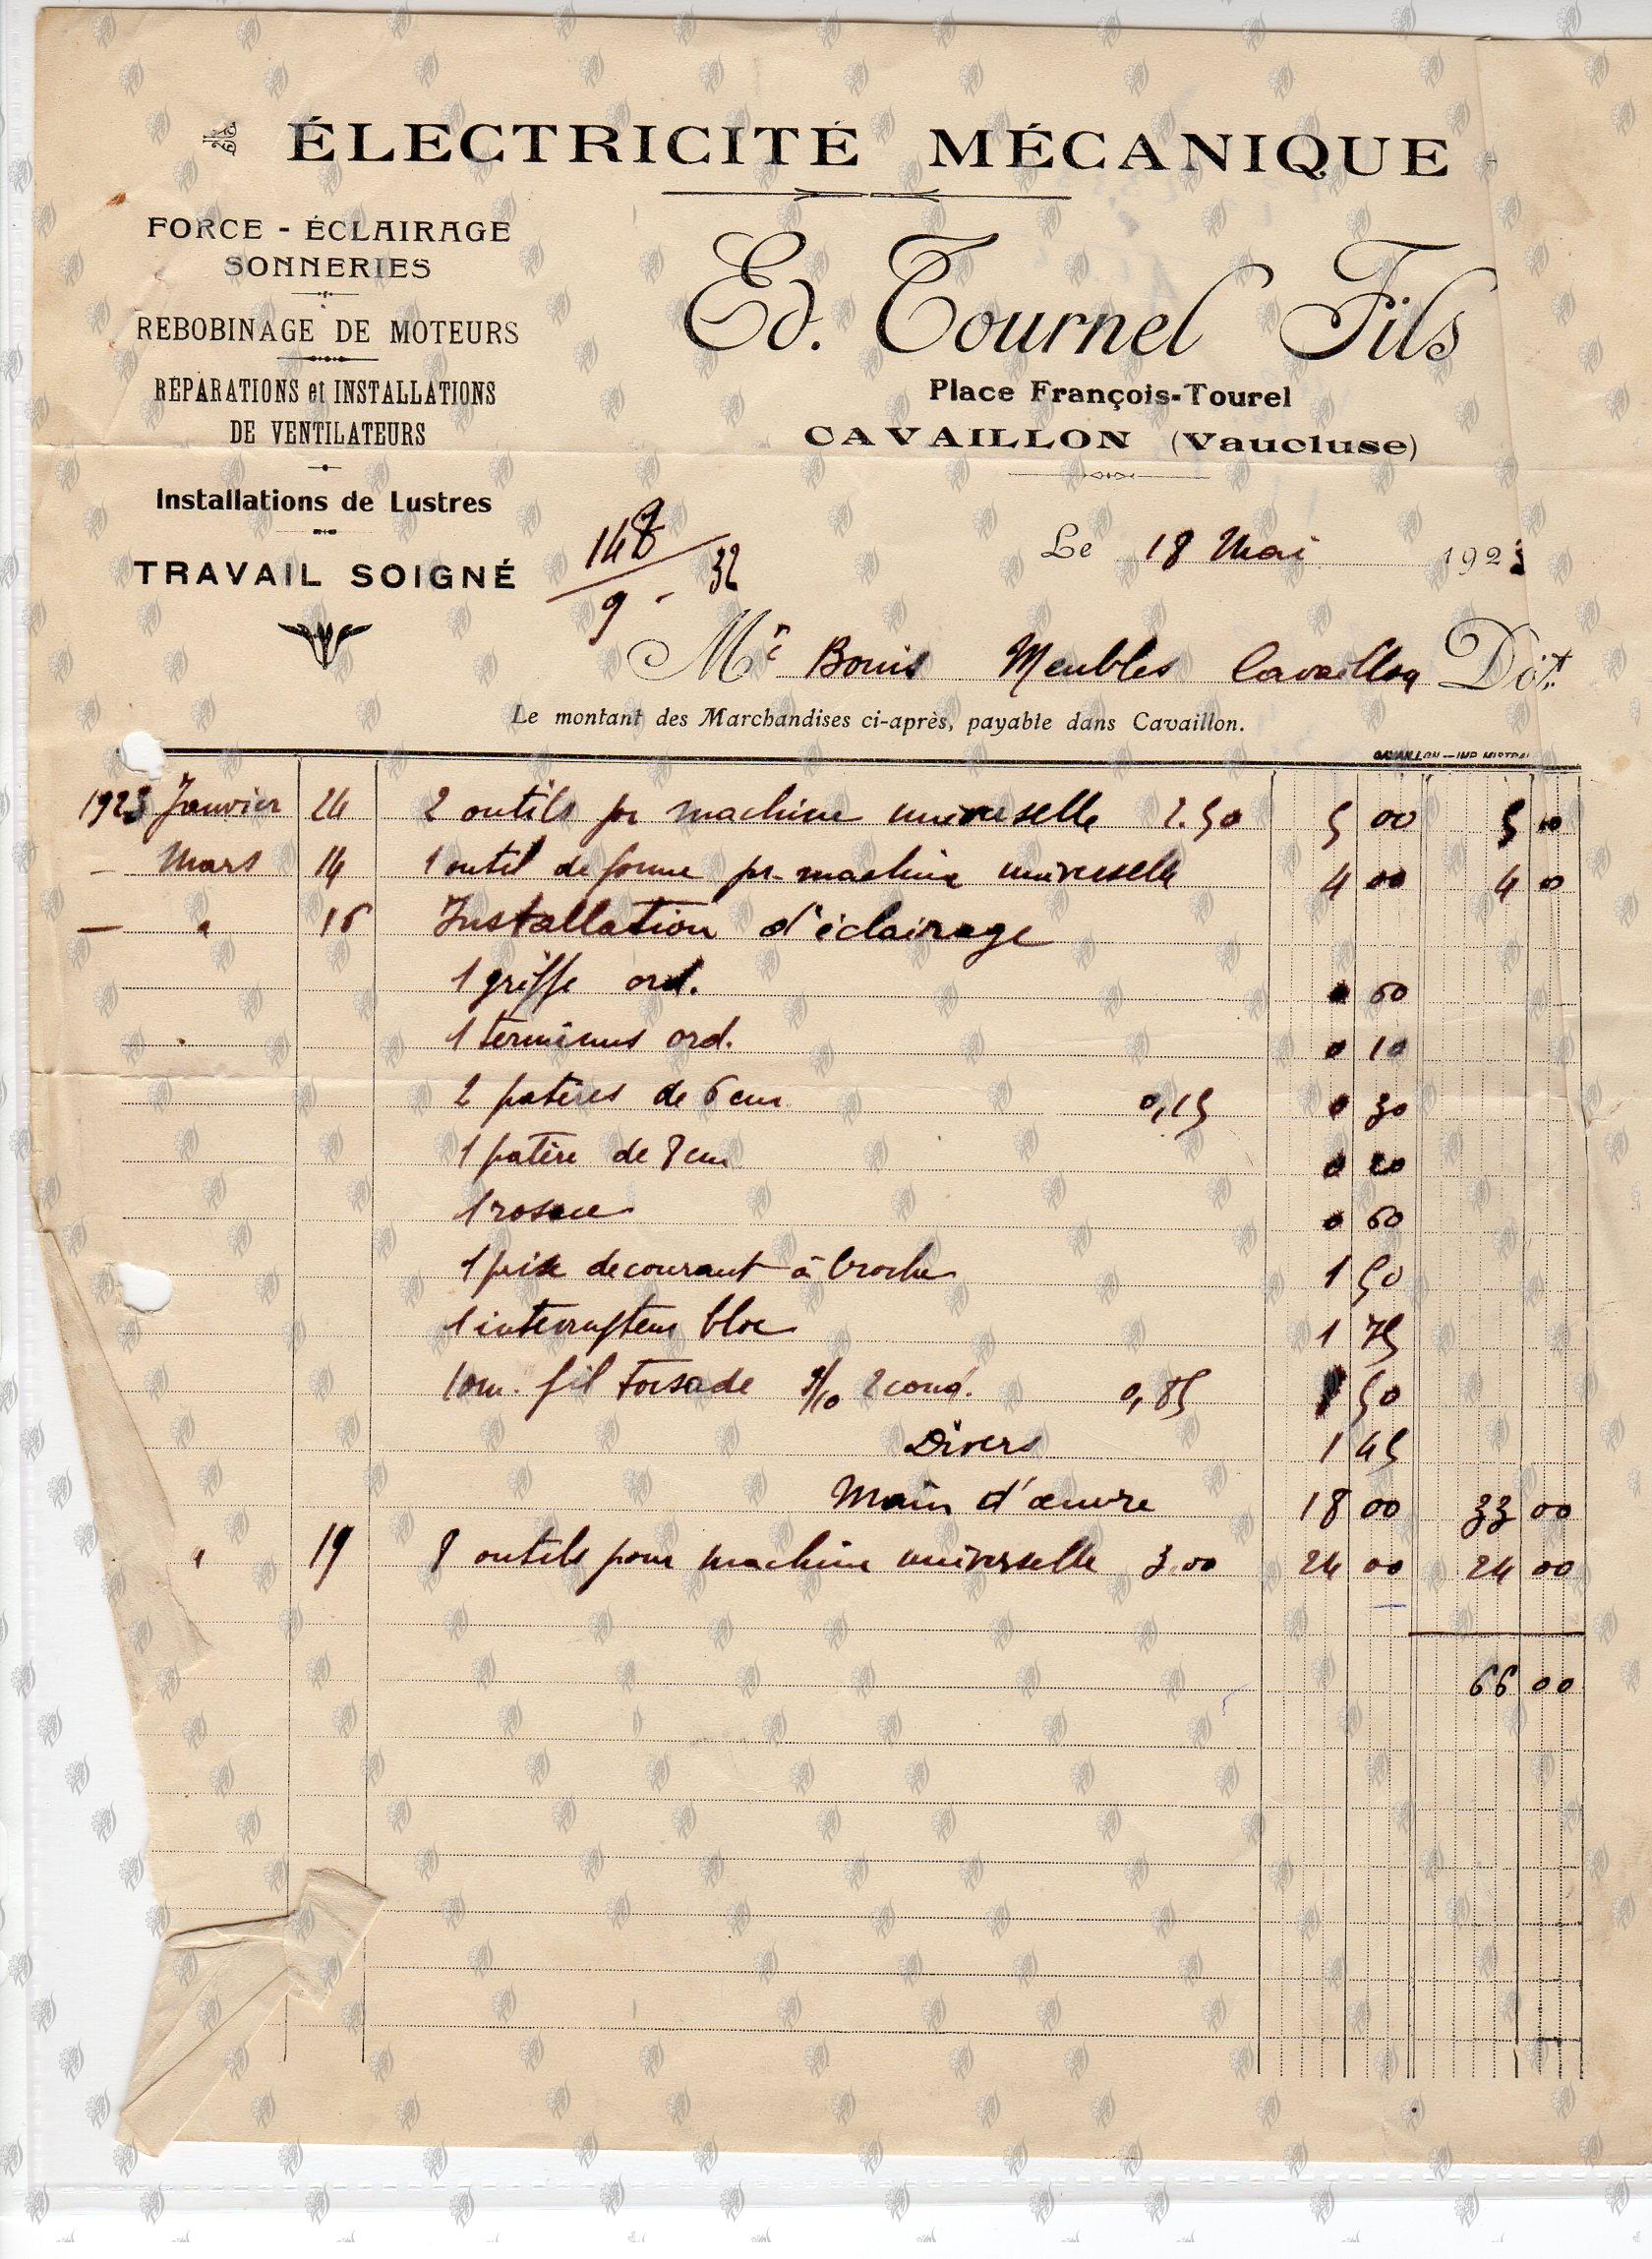 ÉLECTRICITÉ MÉCANIQUE
FORCE - ÉCLAIRAGE
SONNERIES
REBOBINAGE DE MOTEURS
RÉPARATIONS et INSTALLATIONS
DE VENTILATEURS
Installations de Lustres
TRAVAIL SOIGNÉ
Ed. Tournel Fils
Place François-Tourel
CAVAILLON (Vaucluse)
148
9 - 32
Le 18 Mai 1923
Mr Bouis Meubles Cavaillon Doit
Le montant des Marchandises ci-après, payable dans Cavaillon.
CAVAILLON — IMP. MISTRAL
1923 Janvier 24 2 outils pr machine universelle 2.50 5 00 5 00
— Mars 14 1 outil de forme pr. machine universelle 4 00 4 00
— " 16 Installation d'éclairage
1 griffe ord. 0 60
1 terminus ord. 0 10
2 patères de 6 cm 0,15 0 30
1 patère de 8 cm 0 20
1 rosace 0 60
1 prise de courant à broche 1 50
1 interrupteur bloc 1 75
10m. fil torsade 9/10 2 cond. 0,85 8 50
Divers 1 45
Main d'œuvre 18 00 33 00
" 19 8 outils pour machine universelle 3.00 24 00 24 00
66 00